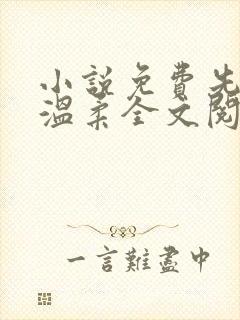 小説免費先
溫柔全文閱
一言難盡中